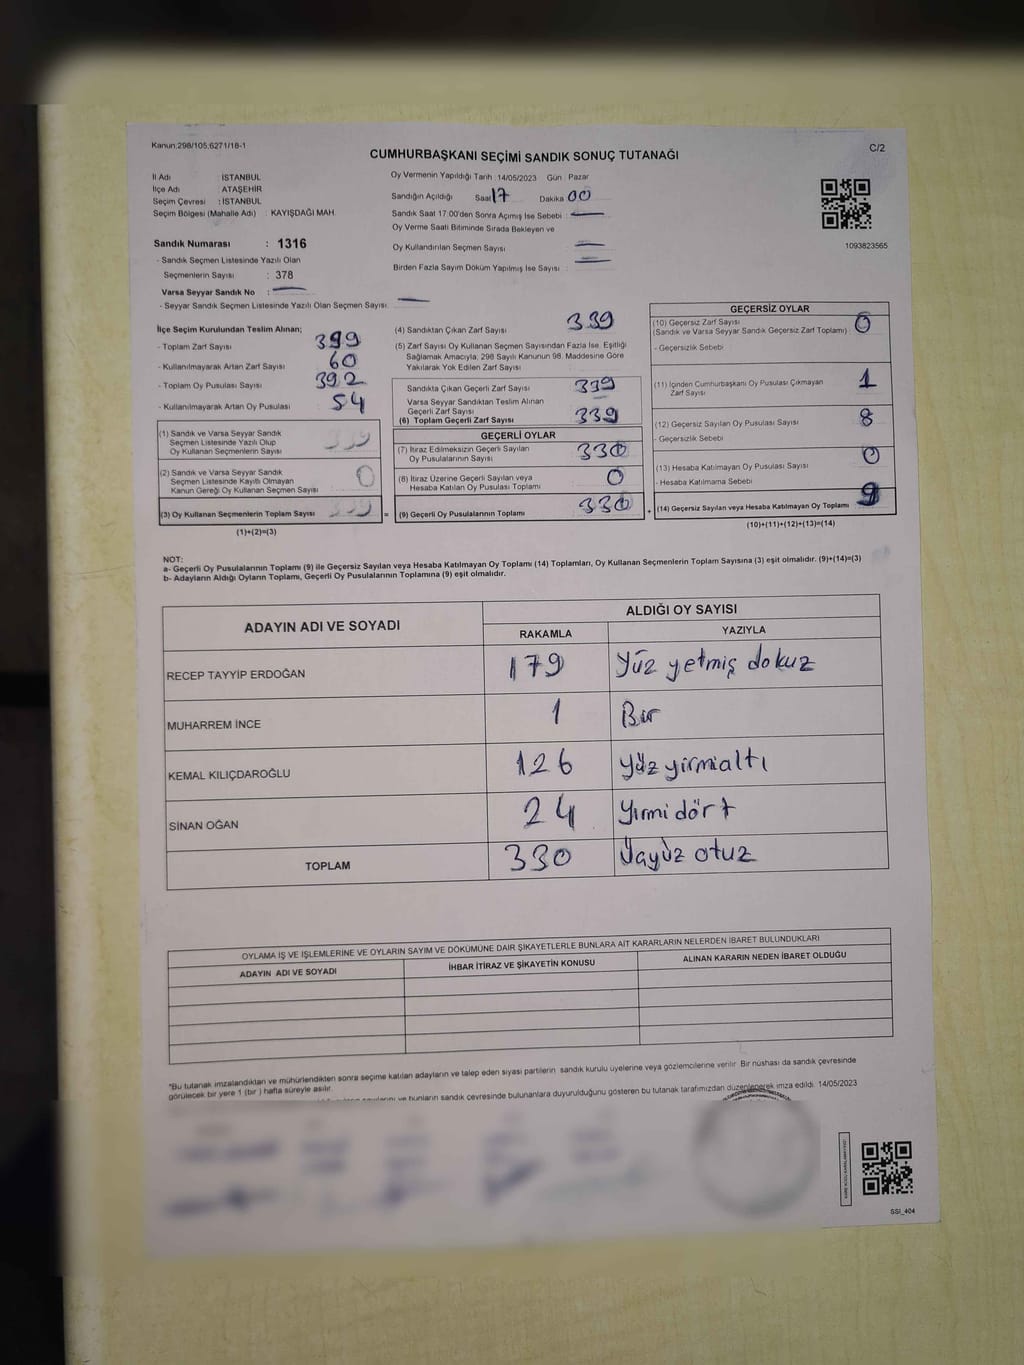 Kanun:298/105;6271/18-1
C/2
CUMHURBAŞKANI SEÇİMİ SANDIK SONUÇ TUTANAĞI
İl Adı : İSTANBUL
İlçe Adı : ATAŞEHİR
Seçim Çevresi : İSTANBUL
Seçim Bölgesi (Mahalle Adı) : KAYIŞDAĞI MAH.
Sandık Numarası : 1316
- Sandık Seçmen Listesinde Yazılı Olan
Seçmenlerin Sayısı : 378
Varsa Seyyar Sandık No :
- Seyyar Sandık Seçmen Listesinde Yazılı Olan Seçmen Sayısı:
Oy Vermenin Yapıldığı Tarih :14/05/2023 Gün : Pazar
Sandığın Açıldığı Saat 17 Dakika 00
Sandık Saat 17.00'den Sonra Açımış İse Sebebi :
Oy Verme Saati Bitiminde Sırada Bekleyen ve
Oy Kullandırılan Seçmen Sayısı
Birden Fazla Sayım Döküm Yapılmış İse Sayısı :
1093823565
İlçe Seçim Kurulundan Teslim Alınan;
- Toplam Zarf Sayısı 399
- Kullanılmayarak Artan Zarf Sayısı 60
- Toplam Oy Pusulası Sayısı 392
- Kullanılmayarak Artan Oy Pusulası 54
(1) Sandık ve Varsa Seyyar Sandık
Seçmen Listesinde Yazılı Olup
Oy Kullanan Seçmenlerin Sayısı 339
(2) Sandık ve Varsa Seyyar Sandık
Seçmen Listesinde Kayıtlı Olmayan
Kanun Gereği Oy Kullanan Seçmen Sayısı 0
(3) Oy Kullanan Seçmenlerin Toplam Sayısı 339
=
(1)+(2)=(3)
(4) Sandıktan Çıkan Zarf Sayısı 339
(5) Zarf Sayısı Oy Kullanan Seçmen Sayısından Fazla İse, Eşitliği
Sağlamak Amacıyla, 298 Sayılı Kanunun 98. Maddesine Göre
Yakılarak Yok Edilen Zarf Sayısı
Sandıkta Çıkan Geçerli Zarf Sayısı 339
Varsa Seyyar Sandıktan Teslim Alınan
Geçerli Zarf Sayısı
(6) Toplam Geçerli Zarf Sayısı 339
GEÇERLİ OYLAR
(7) İtiraz Edilmeksizin Geçerli Sayılan
Oy Pusulalarının Sayısı 330
(8) İtiraz Üzerine Geçerli Sayılan veya
Hesaba Katılan Oy Pusulası Toplamı 0
(9) Geçerli Oy Pusulalarının Toplamı 330
+
GEÇERSİZ OYLAR
(10) Geçersiz Zarf Sayısı
(Sandık ve Varsa Seyyar Sandık Geçersiz Zarf Toplamı) 0
- Geçersizlik Sebebi
(11) İçinden Cumhurbaşkanı Oy Pusulası Çıkmayan
Zarf Sayısı 1
(12) Geçersiz Sayılan Oy Pusulası Sayısı 8
- Geçersizlik Sebebi
(13) Hesaba Katılmayan Oy Pusulası Sayısı 0
- Hesaba Katılmama Sebebi
(14) Geçersiz Sayılan veya Hesaba Katılmayan Oy Toplamı 9
(10)+(11)+(12)+(13)=(14)
NOT:
a- Geçerli Oy Pusulalarının Toplamı (9) ile Geçersiz Sayılan veya Hesaba Katılmayan Oy Toplamı (14) Toplamları, Oy Kullanan Seçmenlerin Toplam Sayısına (3) eşit olmalıdır. (9)+(14)=(3)
b- Adayların Aldığı Oyların Toplamı, Geçerli Oy Pusulalarının Toplamına (9) eşit olmalıdır.
ADAYIN ADI VE SOYADI ALDIĞI OY SAYISI
RAKAMLA YAZIYLA
RECEP TAYYİP ERDOĞAN 179 Yüz yetmiş dokuz
MUHARREM İNCE 1 Bir
KEMAL KILIÇDAROĞLU 126 Yüz yirmialtı
SİNAN OĞAN 24 Yirmi dört
TOPLAM 330 Üçyüz otuz
OYLAMA İŞ VE İŞLEMLERİNE VE OYLARIN SAYIM VE DÖKÜMÜNE DAİR ŞİKAYETLERLE BUNLARA AİT KARARLARIN NELERDEN İBARET BULUNDUKLARI
ADAYIN ADI VE SOYADI İHBAR İTİRAZ VE ŞİKAYETİN KONUSU ALINAN KARARIN NEDEN İBARET OLDUĞU
*Bu tutanak imzalandıktan ve mühürlendikten sonra seçime katılan adayların ve talep eden siyasi partilerin sandık kurulu üyelerine veya gözlemcilerine verilir. Bir nüshası da sandık çevresinde
görülecek bir yere 1 (bir) hafta süreyle asılır.
ve bunların sandık çevresinde bulunanlara duyurulduğunu gösteren bu tutanak tarafımızdan düzenlenerek imza edildi. 14/05/2023
SSI_404